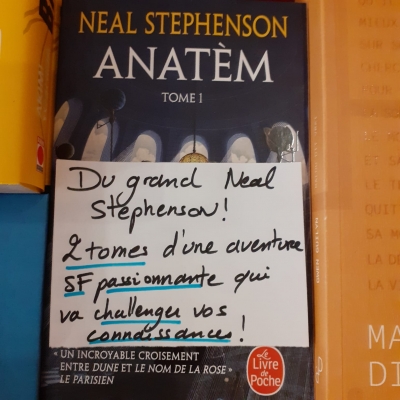 NEAL STEPHENSON
ANATÈM
TOME 1
Du grand Neal
Stephenson!
2 tomes d'une aventure
SF passionnante qui
va challenger vos
connaissances!
« UN INCROYABLE CROISEMENT
ENTRE DUNE ET LE NOM DE LA ROSE »
LE PARISIEN
Le
Livre
de
Poche
MA
DI